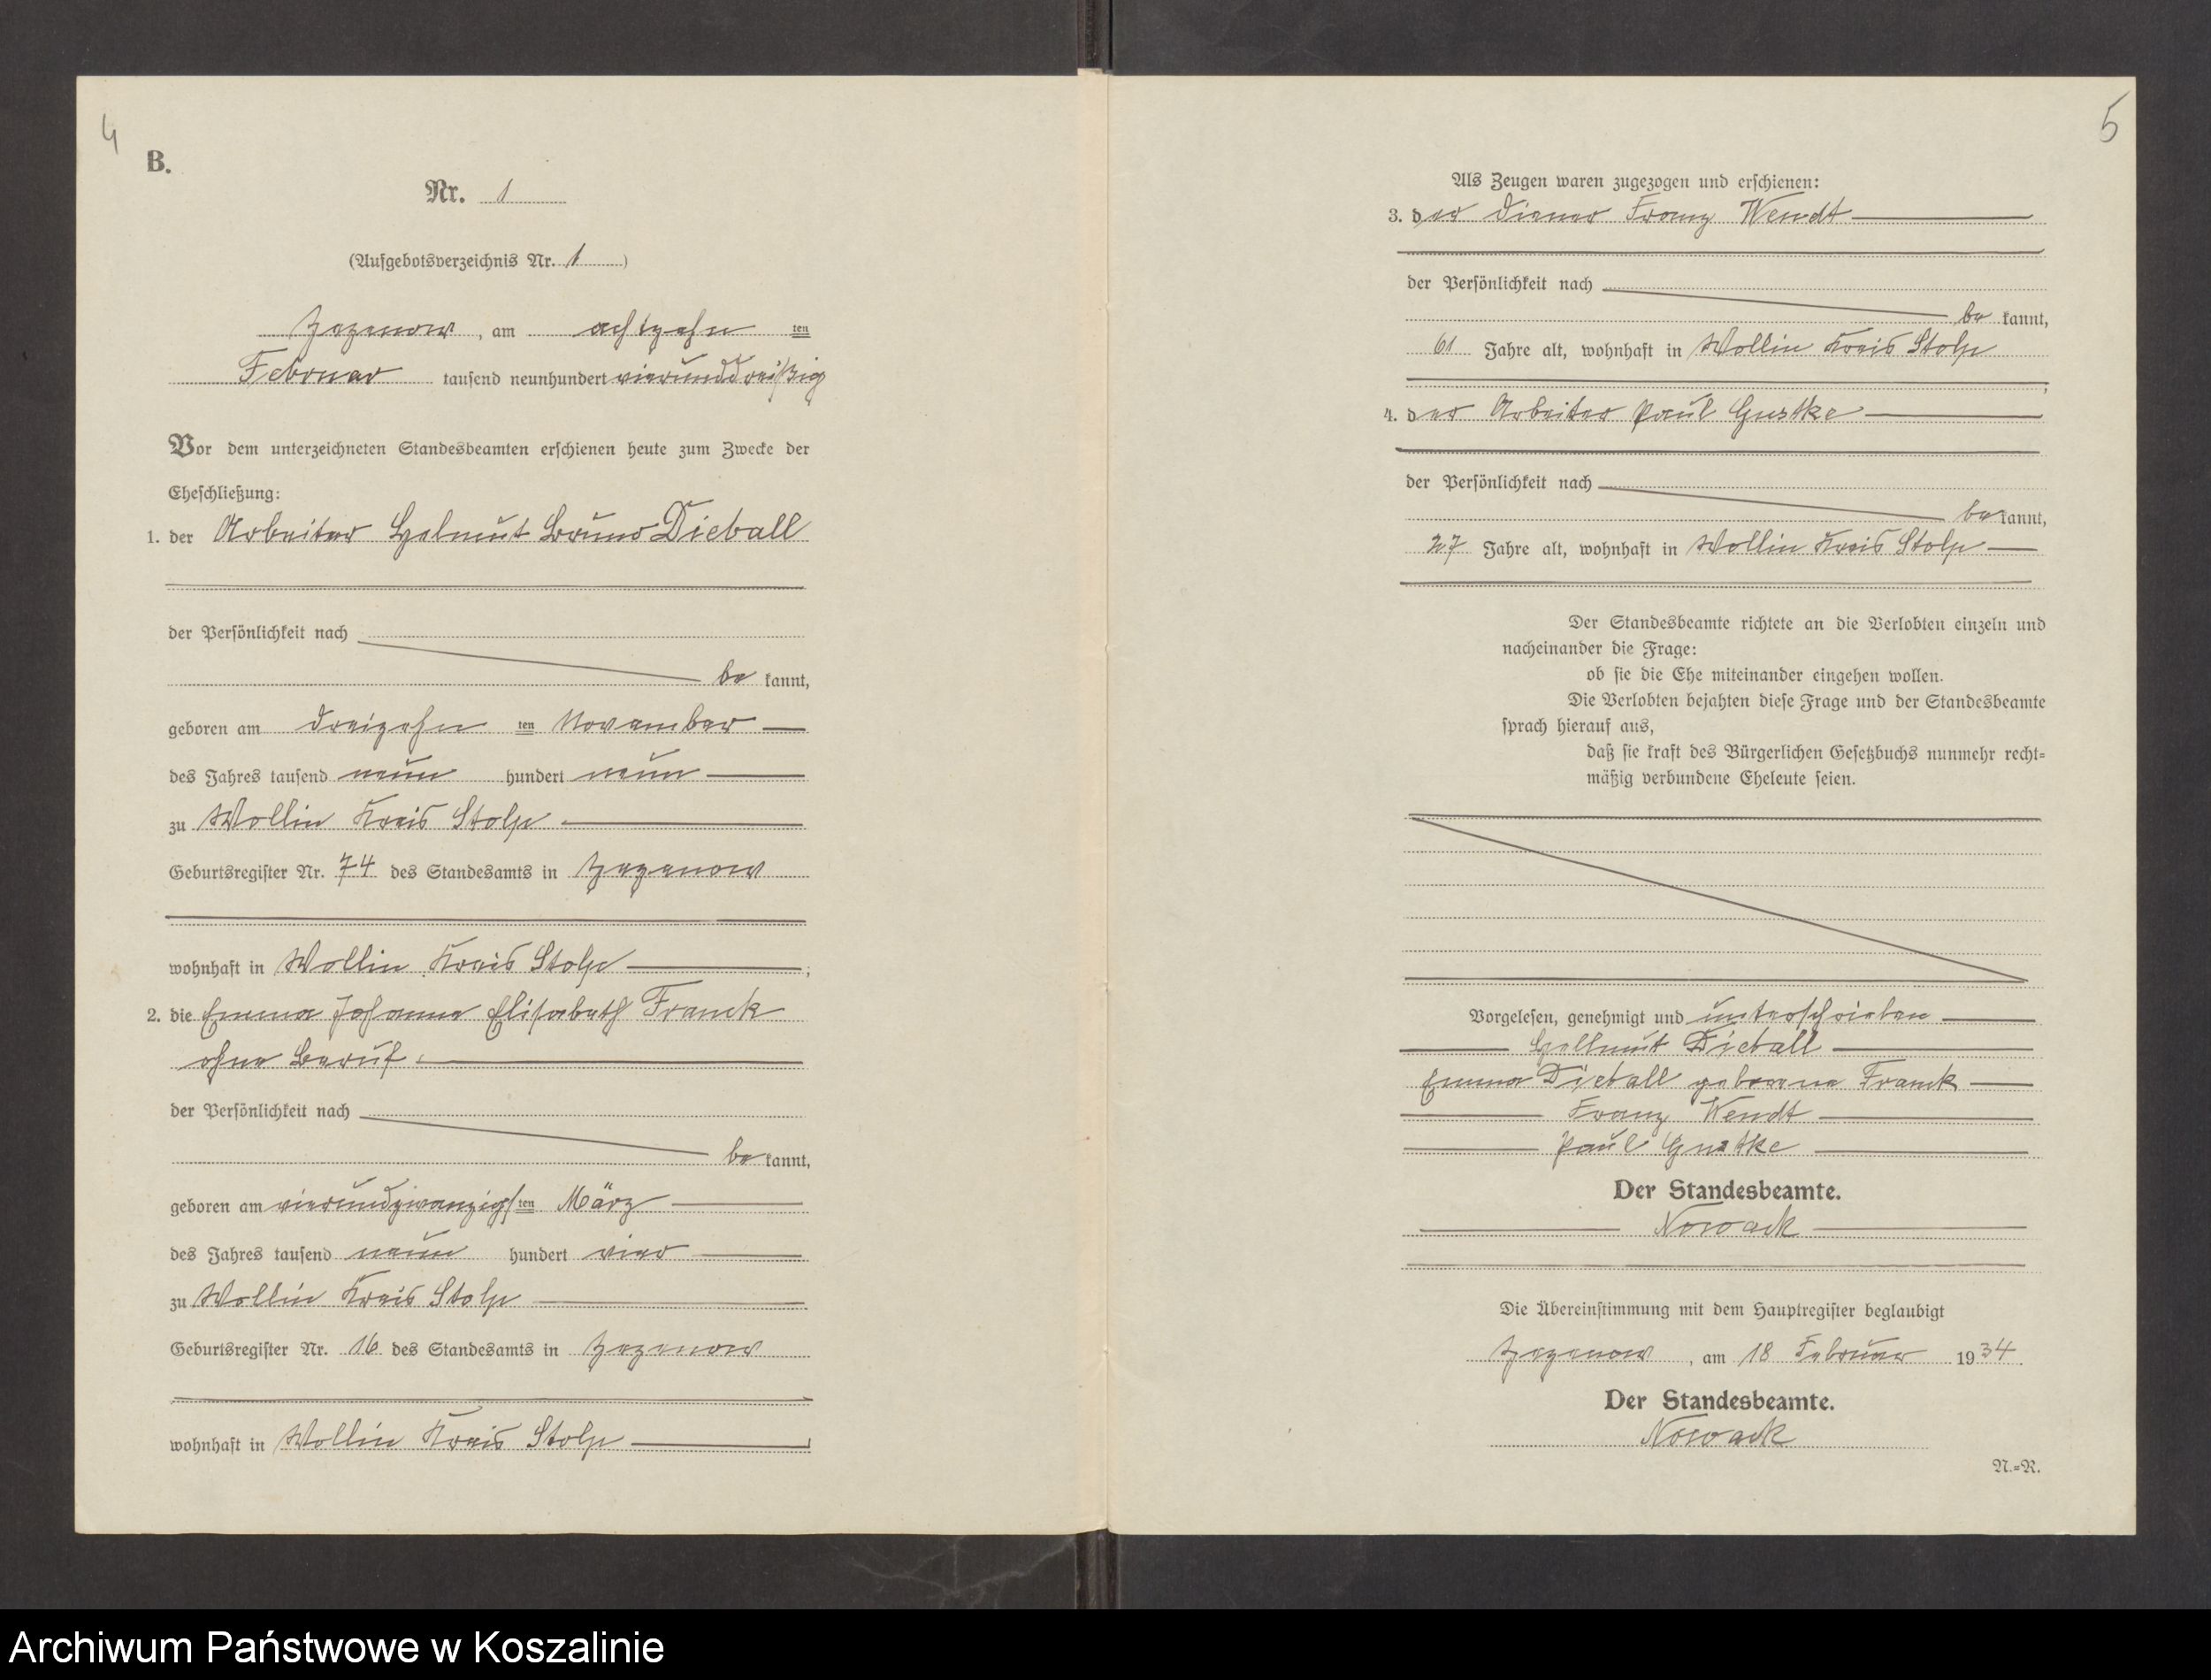 4
B.
Nr. 1
(Aufgebotsverzeichnis Nr. 1)
Zezenow, am achtzehn ten
Februar tausend neunhundert vierunddreißig
Vor dem unterzeichneten Standesbeamten erschienen heute zum Zwecke der
Eheschließung:
1. der Arbeiter Helmut Bruno Dieball
der Persönlichkeit nach
be kannt,
geboren am dreizehn ten November
des Jahres tausend neun hundert neun
zu Wollin Kreis Stolp
Geburtsregister Nr. 74 des Standesamts in Zezenow
wohnhaft in Wollin Kreis Stolp;
2. die Emma Johanna Elisabeth Franck
ohne Beruf
der Persönlichkeit nach
be kannt,
geboren am vierundzwanzigsten März
des Jahres tausend neun hundert vier
zu Wollin Kreis Stolp
Geburtsregister Nr. 16 des Standesamts in Zezenow
wohnhaft in Wollin Kreis Stolp
5
Als Zeugen waren zugezogen und erschienen:
3. der Diener Franz Wendt
der Persönlichkeit nach
be kannt,
61 Jahre alt, wohnhaft in Wollin Kreis Stolp
;
4. der Arbeiter Paul Gustke
der Persönlichkeit nach
be kannt,
27 Jahre alt, wohnhaft in Wollin Kreis Stolp
Der Standesbeamte richtete an die Verlobten einzeln und
nacheinander die Frage:
ob sie die Ehe miteinander eingehen wollen.
Die Verlobten bejahten diese Frage und der Standesbeamte
sprach hierauf aus,
daß sie kraft des Bürgerlichen Gesetzbuchs nunmehr recht=
mäßig verbundene Eheleute seien.
Vorgelesen, genehmigt und unterschrieben
Hellmut Dieball
Emma Dieball geborene Franck
Franz Wendt
Paul Gustke
Der Standesbeamte.
Nowack
Die Übereinstimmung mit dem Hauptregister beglaubigt
Zezenow, am 18 Februar 1934.
Der Standesbeamte.
Nowack
N.=R.
Archiwum Państwowe w Koszalinie